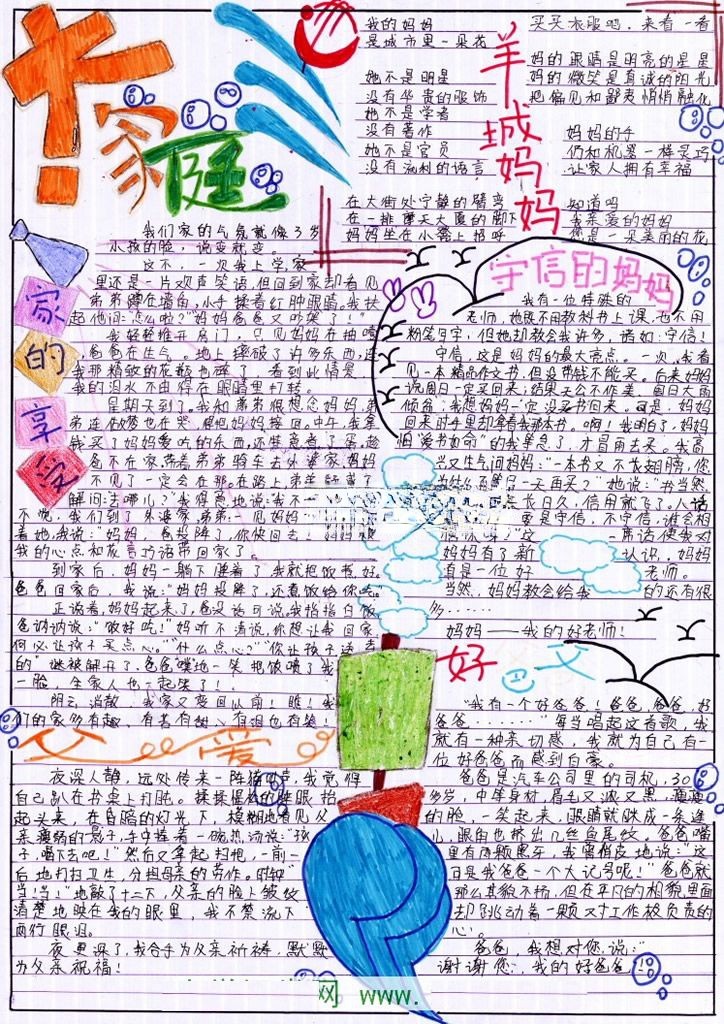 大家庭
我的妈妈
是城市里一朵花
她不是明星
没有华贵的服饰
她不是学者
没有著作
她不是官员
没有流利的语言
在大街处宁静的臂弯
在一排摩天大厦的脚下
妈妈坐在小凳上招呼
羊城妈妈
买买衣服吗,来看一看
妈的眼睛是明亮的星星
妈的微笑是真诚的阳光
把偏见和鄙夷悄悄融化
妈妈的手
们和机器一样灵巧
让家人拥有幸福
知道吗
我亲爱的妈妈
您是一朵美丽的花
家的享受
我们家的气氛就像3岁
小孩的脸,说变就变。
这不,一次我上学,家
里还是一片欢声笑语,但回到家却看见
弟弟蹲在墙角,小手揉着红肿眼睛。我扶
起他问:怎么啦?"妈妈爸爸又吵架了!"
我轻轻推开房门,只见妈妈在抽噎
爸爸在生气。地上摔破了许多东西,连
我那精致的花瓶也碎了,看到此情景
我的泪水不由得在眼睛里打转。
星期天到了。我和弟弟很想念妈妈,弟
弟连做梦也在哭,想把妈妈接回。中午,我拿
我买了妈妈爱吃的东西,还特意煮了蛋,趁
爸不在家,带着弟弟骑车去外婆家,妈妈
不见了一定会在那。在路上弟弟
解问:去哪儿?"我得意地说:我不
不觉,我们到了外婆家,弟弟一见妈妈
着她,我说:"妈妈,爸投降了,你快回去!"妈妈被
我的心点和花言巧语带回家了。
到家后,妈妈一躺下睡着了,我就把饭煮好。
爸爸回家后,我说:"妈妈投降了,还煮饭给你吃。
正说着,妈妈起来了,爸没话可说,我指指白饭
爸讷讷说:"饭好吃!"妈听不清说,你想让我回家,
何必让孩子买点心。"什么点心?""你让孩子送去
的"谜被解开了,爸爸噗地一笑把饭喷了我
一脸,全家人也一起笑了!
阴云消散,我家又变回以前!瞧!我
们的家多有趣,有苦有甜,有泪也有笑!
守信的妈妈
我有一位特殊的
老师,她既不用教科书上课,也不用
粉笔写字,但她却教会我许多,诸如:守信!
守信,这是妈妈的最大亮点。一次,我看
见一本精品作文书,但没带钱不能买。后来妈妈
说周日一定买回来,结果天公不作美,周日大雨
倾盆,我想妈妈一定没买书回来。可是,妈妈
回来时手里却拿着我那本书。啊!我明白了,妈妈
怕"爱书如命"的我等急了,才冒雨去买。我高
兴又生气问妈妈:"一本书又不长翅膀,您
为什么不等日一天再买?"她说:"书当然
长日久,信用就飞了。人活
要是守信,不守信,谁会相
这一席话使我对
妈妈有了新认识,妈妈
真是一位好老师。
当然,妈妈教会给我的还有很
多……
妈妈——我的好老师!
父爱
夜深人静,远处传来一阵猫叫声,我觉得
自己趴在书桌上打盹。揉揉惺忪的睡眼抬
起头来,在昏暗的灯光下,模糊地看见父
亲瘦弱的影子,手中捧着一碗热汤说:"孩
子,喝下去吧!"然后又拿起扫把,一前一
后地打扫卫生,分担母亲的劳作。时钟"
当!当!"地敲了十二下,父亲的脸上皱纹
清楚地映在我的眼里,我不禁流下
两行眼泪。
夜更深了,我合手为父亲祈祷,默默
为父亲祝福!
好父
"我有一个好爸爸!爸爸,爸爸,好
爸爸………"每当唱起这首歌,我
就有一种亲切感,我就为自己有一
位好爸爸而感到自豪。
爸爸是汽车公司里的司机,30
多岁,中等身材,眉毛又浓又黑,瘦瘦
的脸,一笑起来,眼睛就眯成一条逢
儿,眼角也挤出几丝鱼尾纹。爸爸嘴
里有两颗黑牙,我曾俏皮地说:"这
可是我爸爸一个大记号呢!"爸爸就
那么其貌不扬,但在平凡的相貌里面
却跳动着一颗对工作极负责的
心。
爸爸,我想对您说:"
谢谢您,我的好爸爸!
网 www.